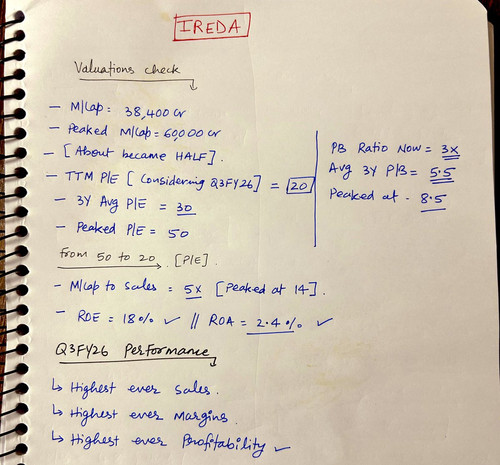 IREDA
Valuations check
- M/Cap = 38,400 Cr
- Peaked M/Cap = 60,000 Cr
- [About became HALF].
- TTM P/E [Considering Q3FY26] = 20
- 3Y Avg P/E = 30
- Peaked P/E = 50
from 50 to 20. [P/E].
- M/Cap to Sales = 5X [Peaked at 14].
- ROE = 18% ✓ // ROA = 2.4% ✓
PB Ratio Now = 3X
Avg 3Y P/B = 5.5
Peaked at - 8.5
Q3FY26 Performance
↳ Highest ever Sales.
↳ Highest ever Margins.
↳ Highest ever Profitability ✓